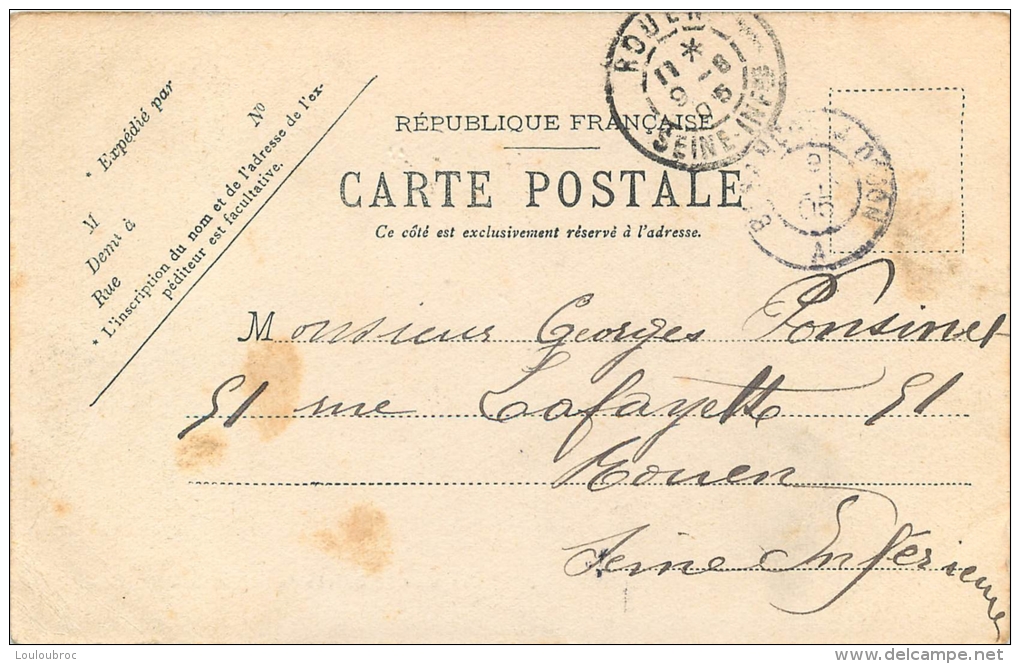 * Expédié par
M
Demt à
Rue
No
* L'inscription du nom et de l'adresse de l'ex-
péditeur est facultative.
RÉPUBLIQUE FRANÇAISE
CARTE POSTALE
Ce côté est exclusivement réservé à l'adresse.
ROUEN
11 * 8
9 - 1
05
SEINE-INFRE
9
05
A
Monsieur Georges Ponsinet
51 rue Lafayette 51
Rouen
Seine Inférieure
Louloubroc
www.delcampe.net